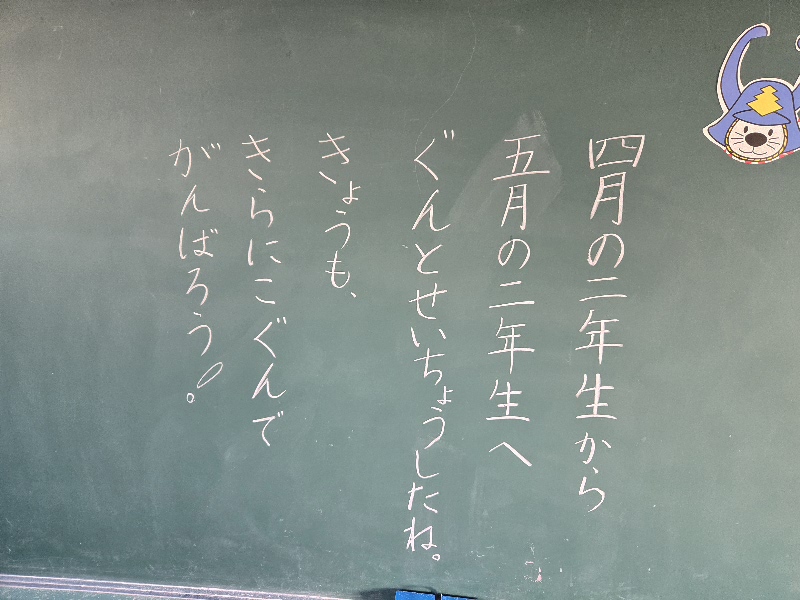 四月の二年生から
五月の二年生へ
ぐんとせいちょうしたね。
きょうも、
きらにこぐんで
がんばろう!